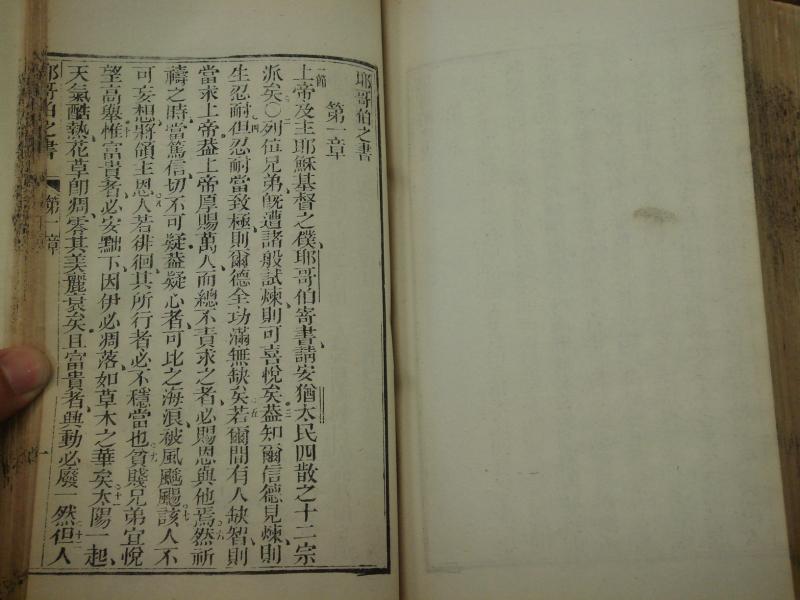 耶哥伯之書
第一章
一節
上帝及主耶穌基督之僕耶哥伯寄書請安猶太民四散之十二宗
二
派矣〇列位兄弟旣遭諸般試煉則可喜悅矣
三
蓋知爾信德見煉則
四
生忍耐但忍耐當致極則爾德全功滿無缺矣
五
若爾間有人缺智則
當求上帝蓋上帝厚賜萬人而總不責求之者必賜恩與他焉
六
然祈
禱之時當篤信切不可疑蓋疑心者可比之海浪被風颺
七
該人不
可妄想將領主恩
八
人若徘徊其所行者必不穩當也
九
貧賤兄弟宜悅
望高舉
十
惟富貴者必安黜下因伊必凋落如草木之華矣
十一
太陽一起
天氣酷熱花草卽凋零其美麗哀矣且富貴者興動必廢一然
十二
但人
耶哥伯之書
第一章
一